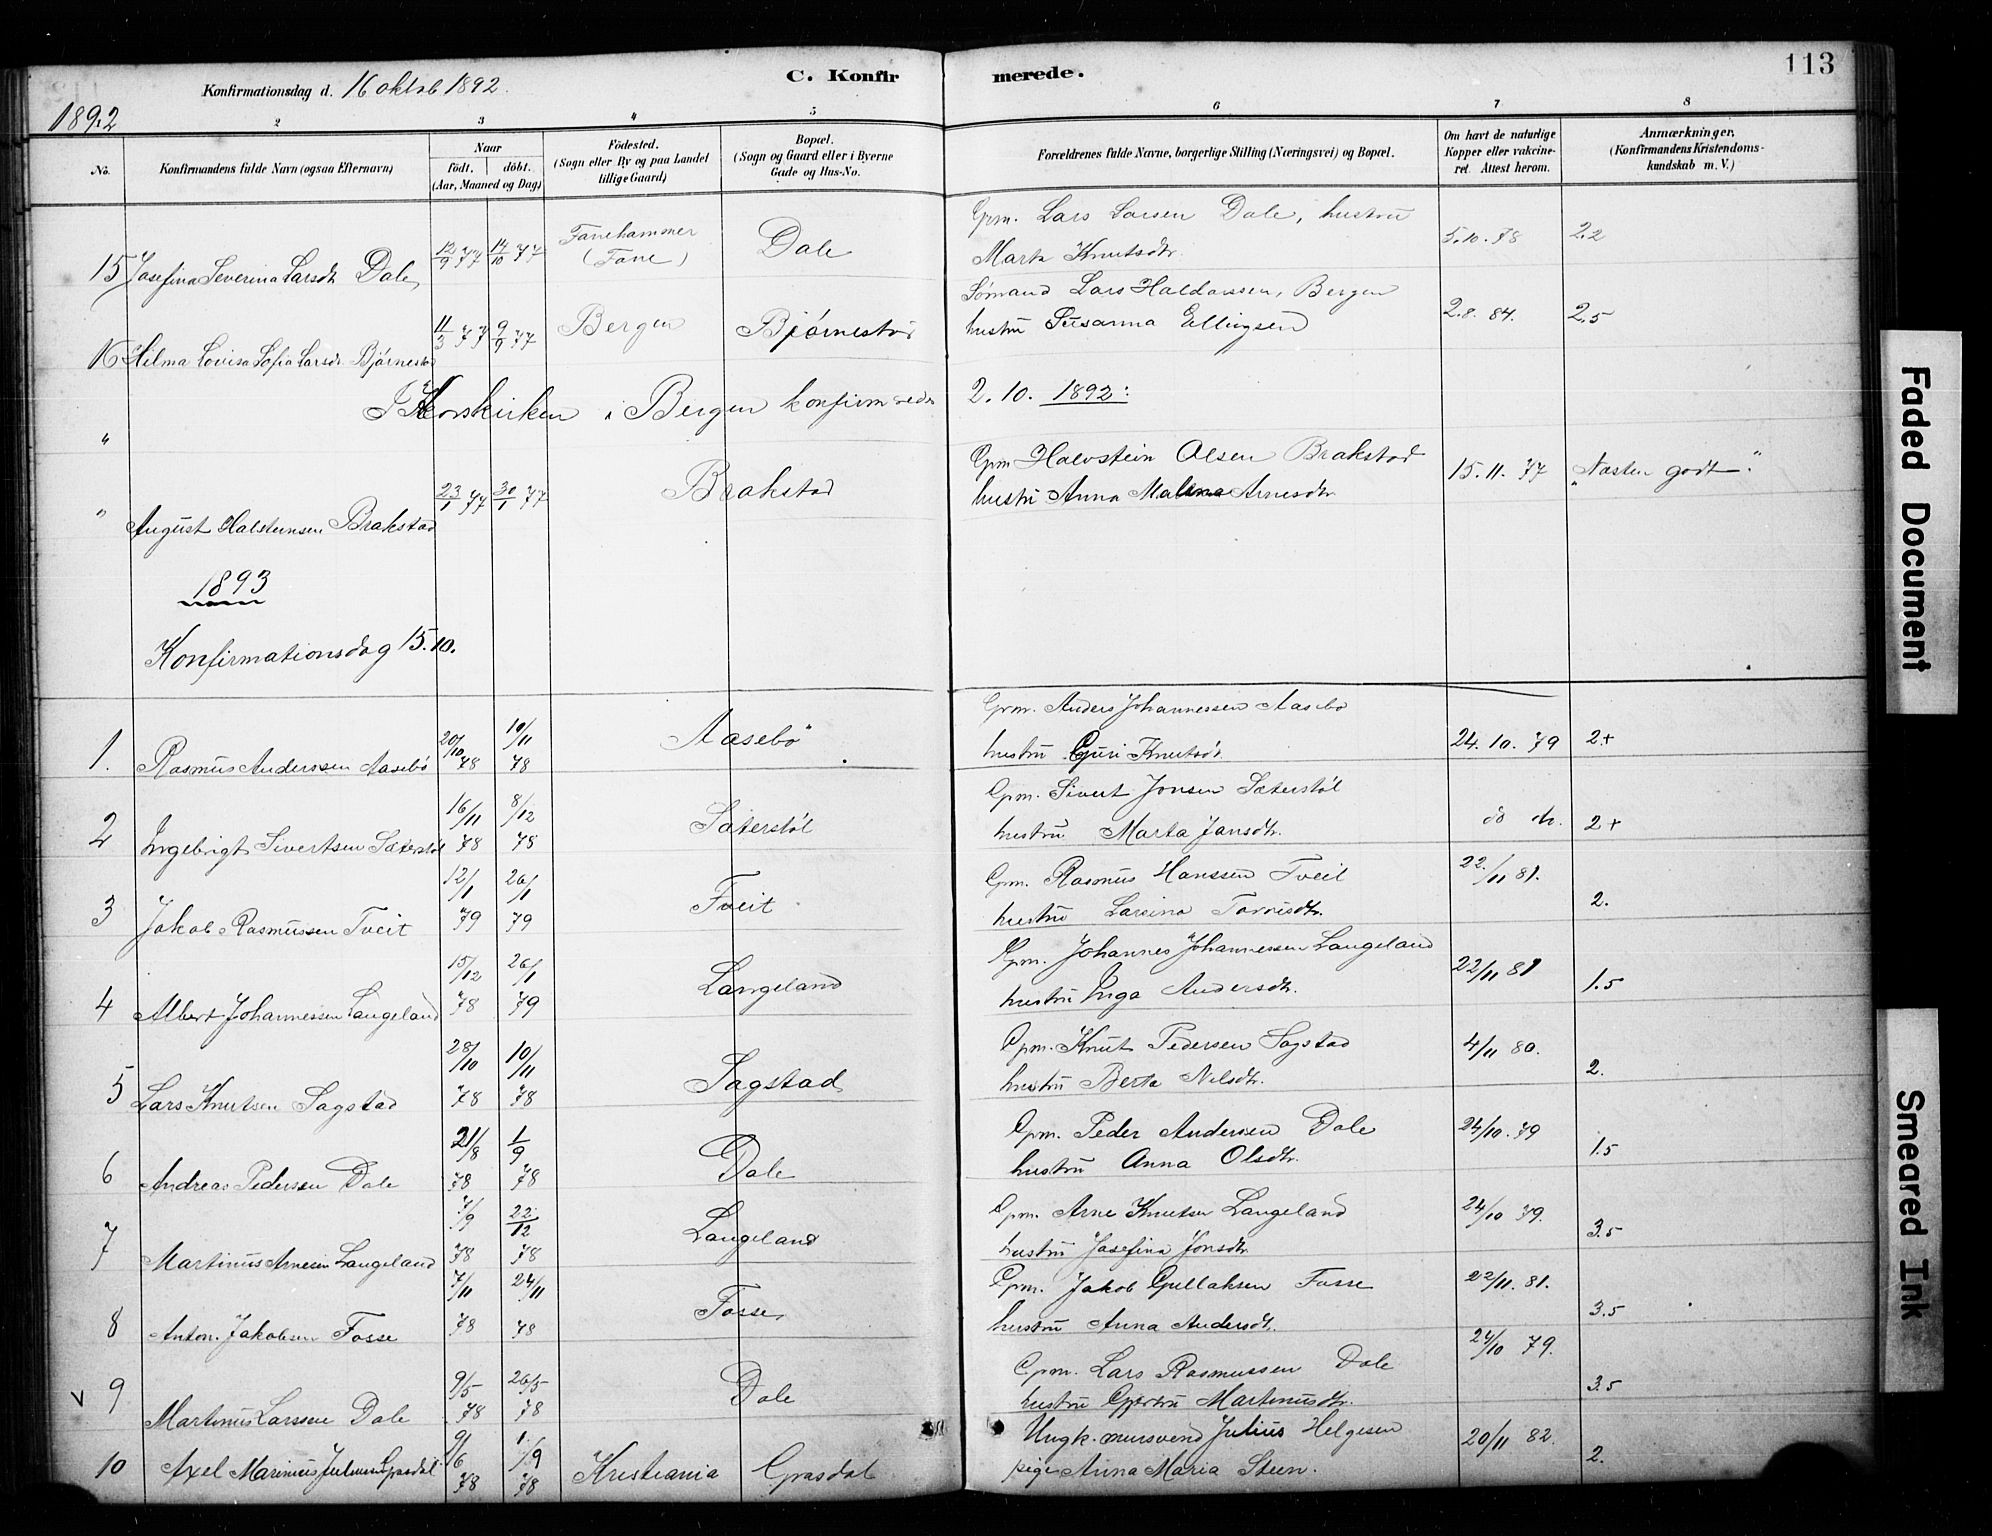 113
Konfirmationsdag d. 16 oktob 1892.
C. Konfirmerede.
1892
2 3 4 5 6 7 8
No.
Konfirmandens fulde Navn (ogsaa Efternavn)
Naar
födt. döbt.
(Aar, Maaned og Dag)
Födested.
(Sogn eller By og paa Landet
tillige Gaard.)
Bopæl.
(Sogn og Gaard eller i Byerne
Gade og Hus-No.
Forældrenes fulde Navne, borgerlige Stilling (Næringsvei) og Bopæl.
Om havt de naturlige
Kopper eller vakcine-
ret. Attest herom.
Anmærkninger.
(Konfirmandens Kristendoms-
kundskab m. V.)
15 Josefina Severina Larsdtr Dale, 12/9 77 14/10 77 Fanehammer (Fane) Dale
Gpm. Lars Larsen Dale, hustru
Marta Knutsdtr. 5.10.78 2.2
16 Hilma Lovisa Sofia Larsdr. Bjørnestad 11/3 77 9/9 77 Bergen Bjørnestad
Sømand Lars Haldorssen, Bergen
hustru Susanna Ellingsen 2.8.84. 2.5
" I Korskirken i Bergen konfirmeredes 2.10.1892:
" August Halsteinsen Brakstad 23/1 77 30/1 77 Brakstad
Gpm Halvstein Olsen Brakstad
hustru Anna Malena Arnesdtr 15.11.77 "Næsten godt".
1893
Konfirmationsdag 15.10.
1. Rasmus Anderssen Aasebø 20/10 78 10/11 78 Aasebø
Gpm. Anders Johannessen Aasebø
hustru Guri Knutsdt. 24.10.79 2+
2 Ingebrigt Sivertsen Sæterstøl 16/11 78 8/12 78 Sæterstøl
Gpm. Sivert Jonsen Sæterstøl
hustru Marta Jansdtr. do do. 2+
3 Jakob Rasmussen Tveit 12/1 79 26/1 79 Tveit
Gpm. Rasmus Hanssen Tveit
hustru Larsina 22/11 81. 2.
4 Albert Johannessen Langeland 15/12 78 26/1 79 Langeland
Gpm. Johannes Johannessen Langeland
hustru Inga Andersdtr. 22/11 81 1.5
5 Lars Knutsen Sagstad 28/10 78 10/11 78 Sagstad
Gpm. Knut Pedersen Sagstad
hustru Berta Nilsdtr. 4/11 80. 2.
6 Andreas Pedersen Dale 21/8 78 1/9 78 Dale
Gpm. Peder Andersen Dale
hustru Anna Olsdtr. 24/10.79 1.5
7 Martinus Arnesen Langeland 7/9 78 22/12 78 Langeland
Gpm. Arne Knutsen Langeland
hustru Josefina Jonsdtr 24/10 79. 3.5
8 Anton. Jakobsen Fosse 7/11 78 24/11 78 Fosse,
Gpm. Jakob Gullaksen Fosse
hustru Anna Andersdt. 22/11.81. 3.5
v 9 Martinus Larssen Dale 9/5 78 26/5 78 Dale
Gpm. Lars Rasmussen Dale
hustru Gjertru Martinusdtr. 24/10 79. 3.5
10 Axel Marinius Julius Grasdal 9/6 78 1/9 78 Kristiania Grasdal
Ungk. mursvend Julius Helgesen
pige Anna Maria Steen. 20/11 82. 2.
Faded Document
Smeared Ink